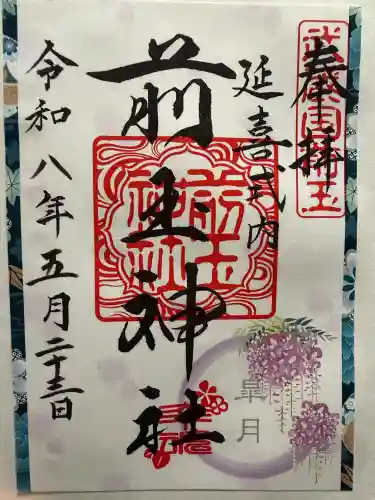 奉拝
延喜式内
前玉神社
令和八年五月二十三日
前玉神社
皐月